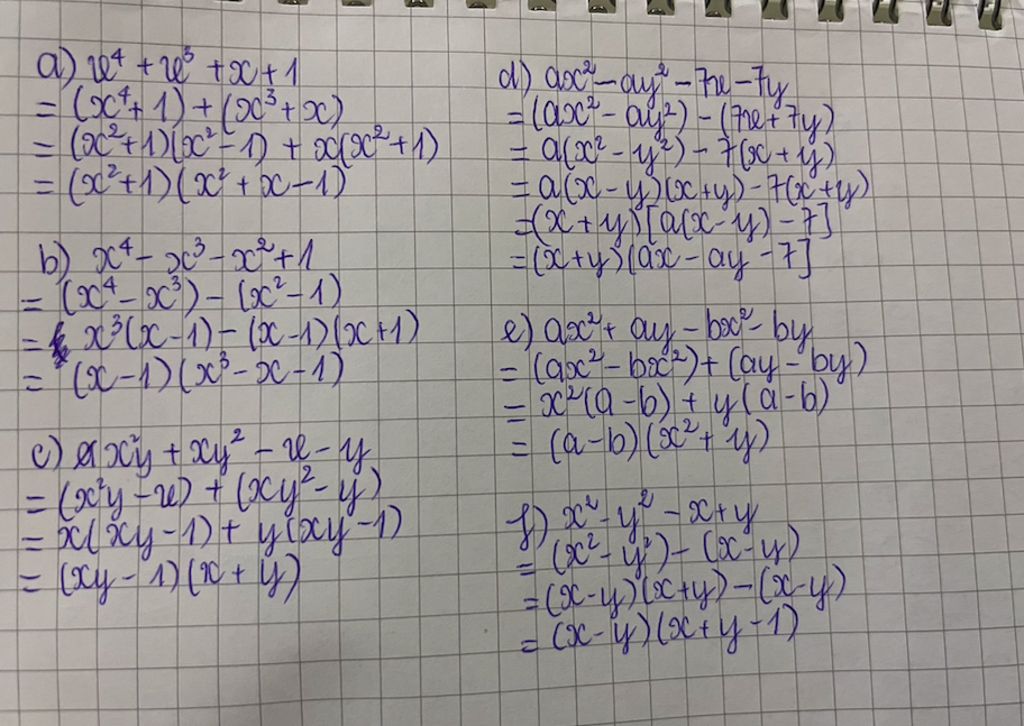 a) x⁴ + x³ + x + 1
= (x⁴ + 1) + (x³ + x)
= (x² + 1)(x² - 1) + x(x² + 1)
= (x² + 1)(x² + x - 1)
b) x⁴ - x³ - x² + 1
= (x⁴ - x³) - (x² - 1)
= x³(x - 1) - (x - 1)(x + 1)
= (x - 1)(x³ - x - 1)
c) x²y + xy² - x - y
= (x²y - x) + (xy² - y)
= x(xy - 1) + y(xy - 1)
= (xy - 1)(x + y)
d) ax² - ay² - 7x - 7y
= (ax² - ay²) - (7x + 7y)
= a(x² - y²) - 7(x + y)
= a(x - y)(x + y) - 7(x + y)
= (x + y)[a(x - y) - 7]
= (x + y)(ax - ay - 7]
e) ax² + ay - bx² - by
= (ax² - bx²) + (ay - by)
= x²(a - b) + y(a - b)
= (a - b)(x² + y)
f) x² - y² - x + y
= (x² - y²) - (x - y)
= (x - y)(x + y) - (x - y)
= (x - y)(x + y - 1)